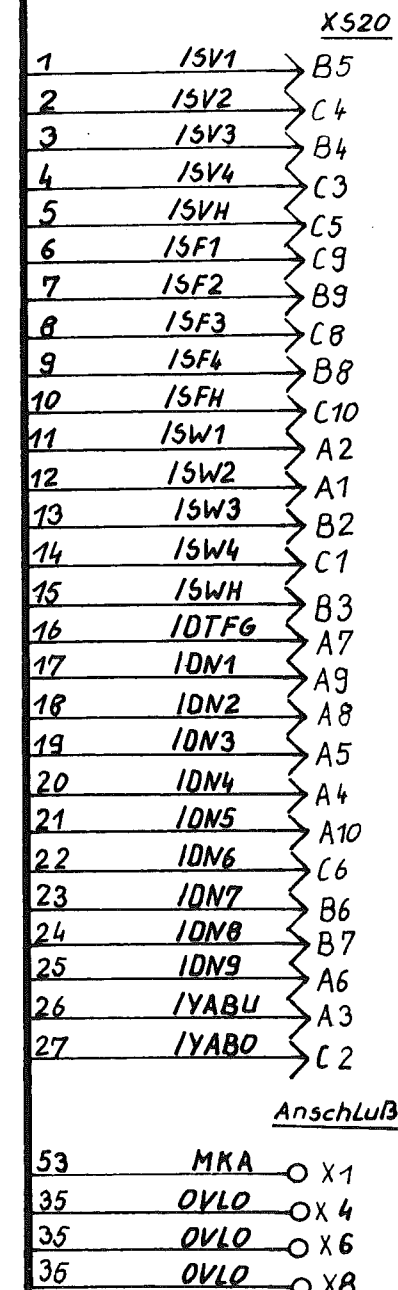 XS20
1 /SV1 B5
2 /SV2 C4
3 /SV3 B4
4 /SV4 C3
5 /SVH C5
6 /SF1 C9
7 /SF2 B9
8 /SF3 C8
9 /SF4 B8
10 /SFH C10
11 /SW1 A2
12 /SW2 A1
13 /SW3 B2
14 /SW4 C1
15 /SWH B3
16 /DTFG A7
17 /DN1 A9
18 /DN2 A8
19 /DN3 A5
20 /DN4 A4
21 /DN5 A10
22 /DN6 C6
23 /DN7 B6
24 /DN8 B7
25 /DN9 A6
26 /YABU A3
27 /YABO C2
Anschluß
53 MKA X1
35 OVLO X4
35 OVLO X6
36 OVLO X8